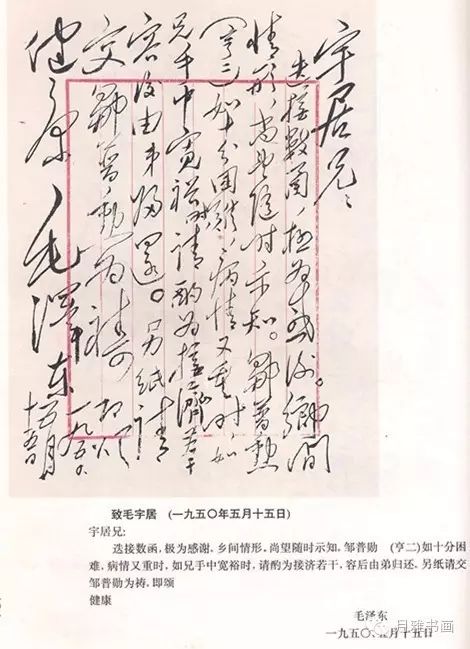 宇居兄：
迭接數函，極为感谢。鄉間
情形，尚望随时示知。鄒普勳
（亨二）如十分困難，病情又重时，如
兄手中寬裕时，請酌为接濟若干
容後由弟歸還。另紙請
交鄒普勳，为禱。即頌
健康！毛澤东
一九五〇、
五月
十五日
致毛宇居 （一九五〇年五月十五日）
宇居兄：
迭接数函，极为感谢，乡间情形，尚望随时示知，邹普勋 （亨二）如十分困
难，病情又重时，如兄手中宽裕时，请酌为接济若干，容后由弟归还，另纸请交
邹普勋为祷，即颂
健康
毛泽东
一九五〇、五月十五日
月雅书画